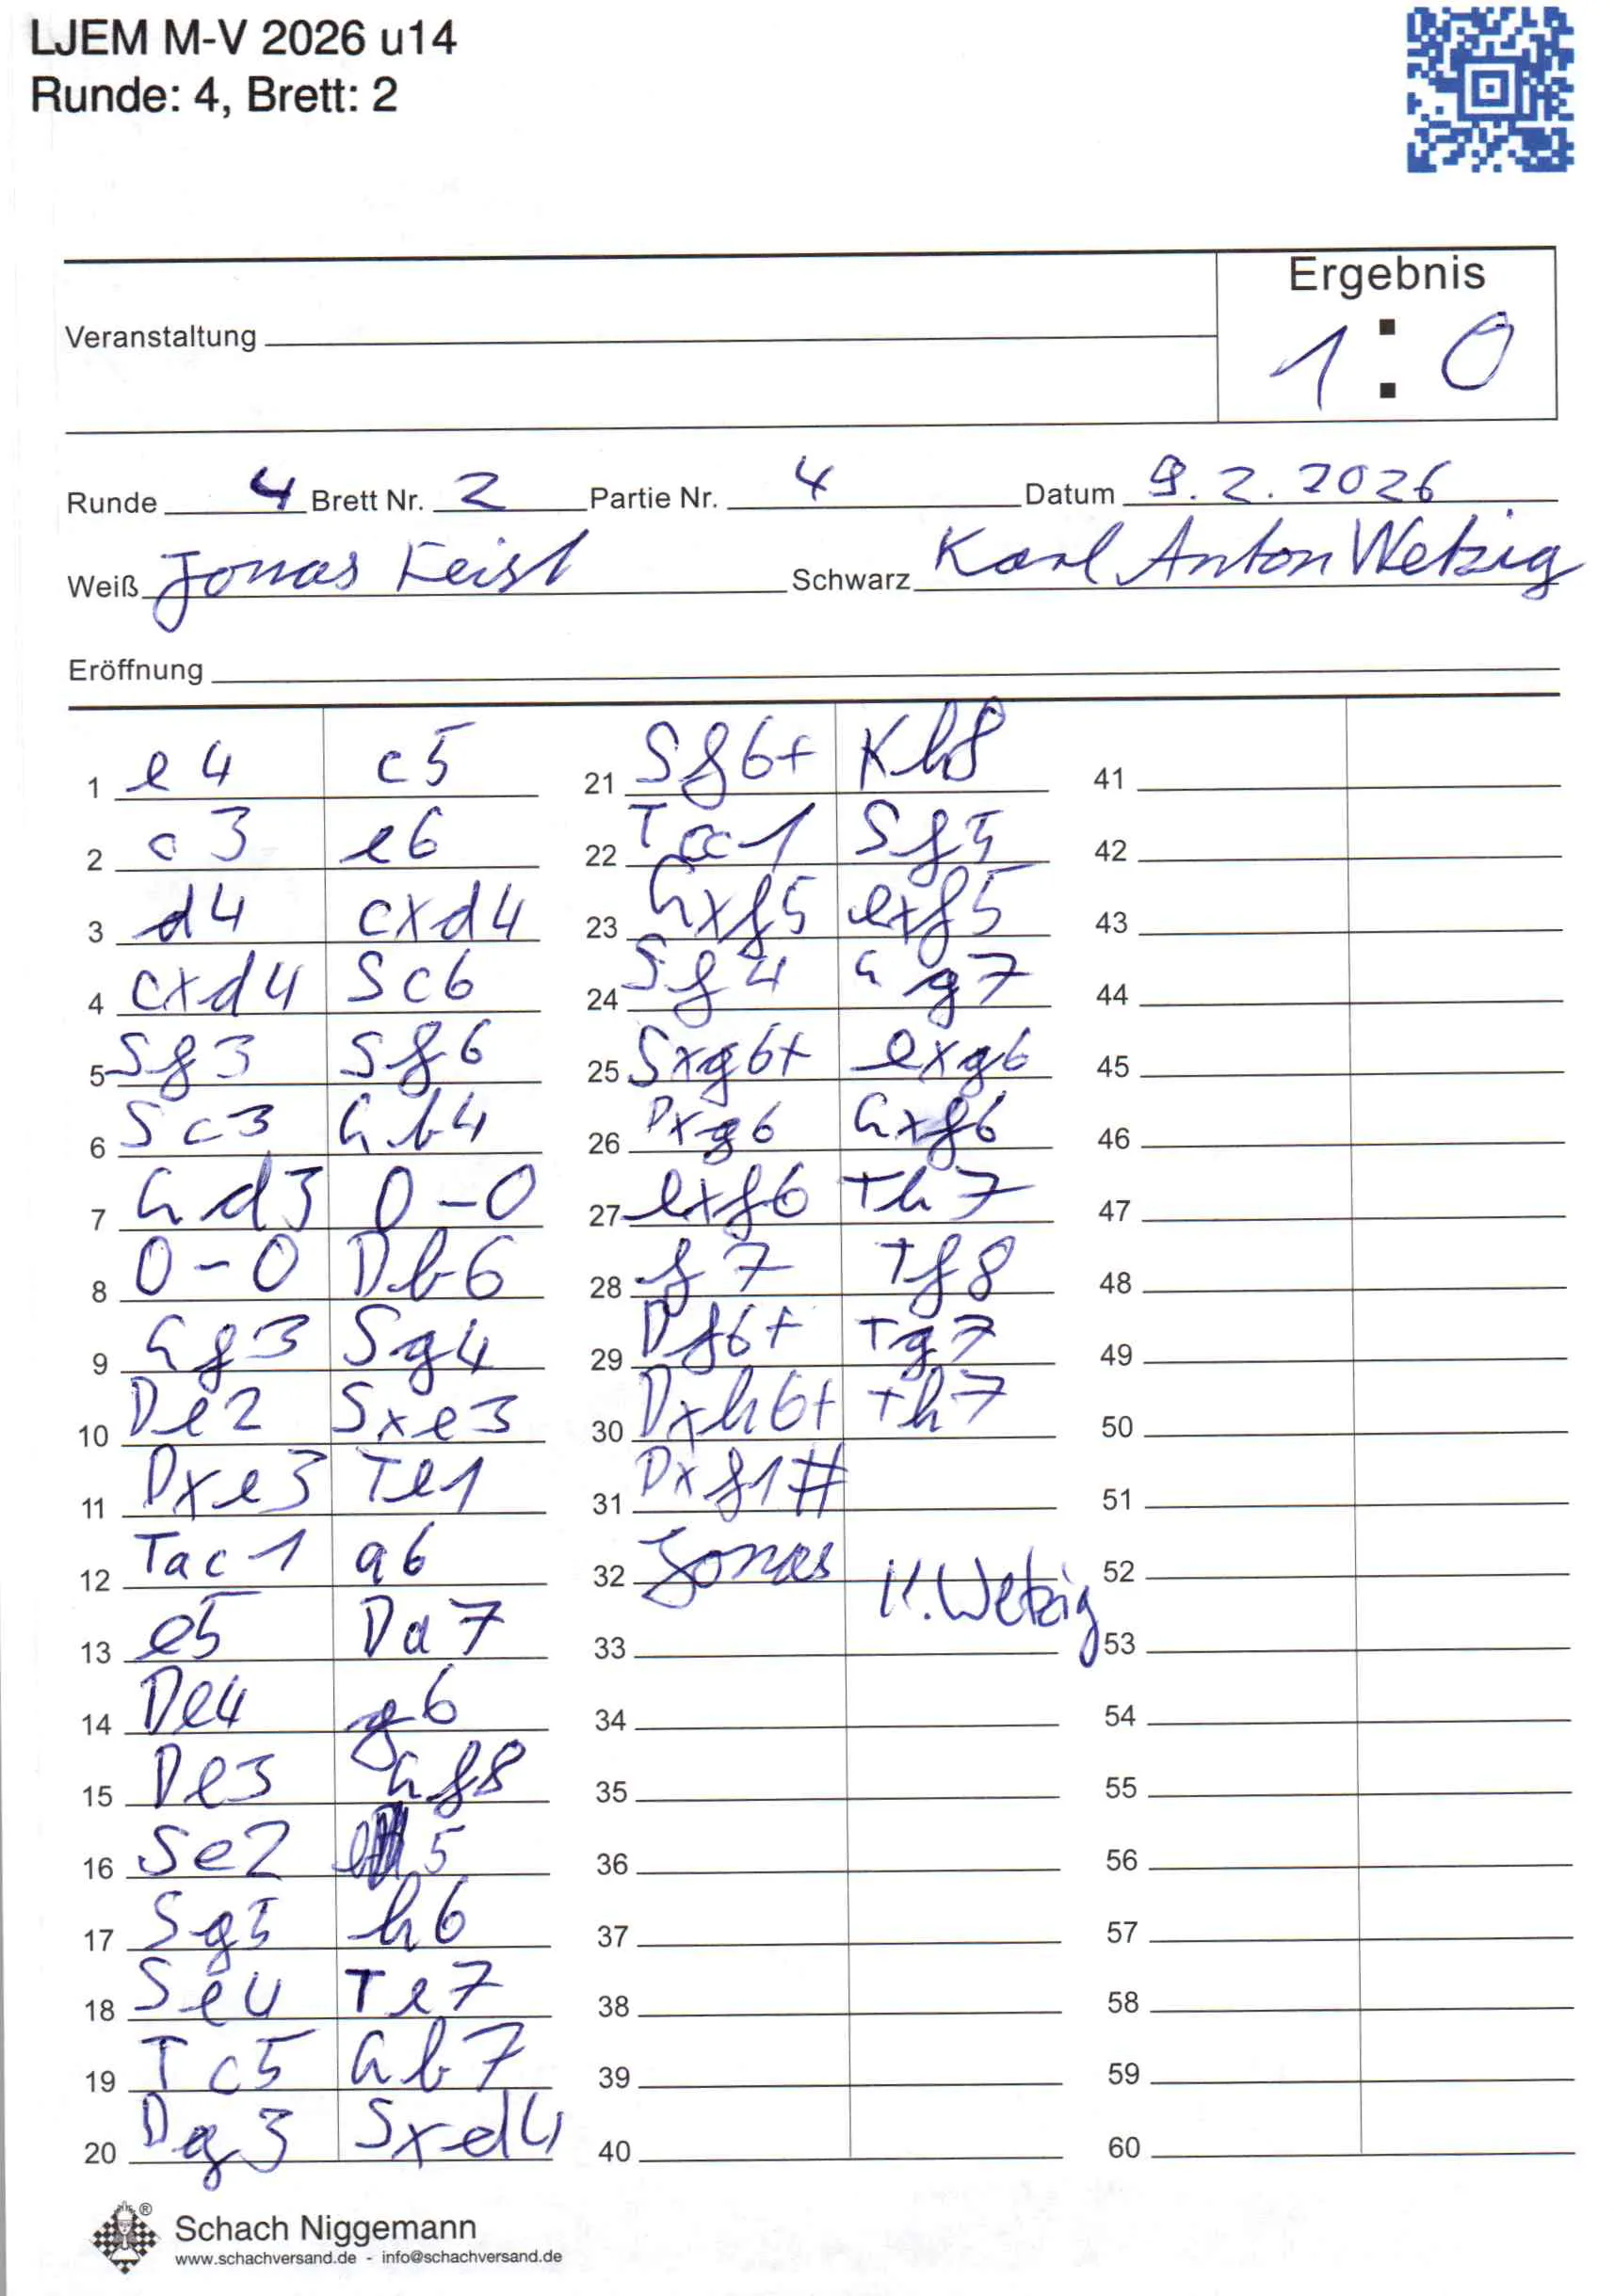 LJEM M-V 2026 u14
Runde: 4, Brett: 2
Ergebnis
Veranstaltung
1 : 0
Runde 4 Brett Nr. 2 Partie Nr. 4 Datum 9.2.2026
Weiß Jonas Feist Schwarz Karl Anton Wetzig
Eröffnung
1 e4 c5
2 c3 e6
3 d4 cxd4
4 cxd4 Sc6
5 Sf3 Sf6
6 Sc3 Lb4
7 Ld3 0-0
8 0-0 Db6
9 Lf3 Sg4
10 De2 Sxe3
11 Dxe3 Te1
12 Tac1 a6
13 e5 Da7
14 De4 g6
15 De3 Lf8
16 Se2 5
17 Sg5 h6
18 Se4 Te7
19 Tc5 Lb7
20 Dg3 Sxd4
21 Sf6+ Kh8
22 Tcc1 Sf5
23 Lxf5 exf5
24 Sf4 Lg7
25 Sxg6+ exg6
26 Dxg6 Lxf6
27 exf6 Th7
28 f7 Tf8
29 Df6+ Tg7
30 Dxh6+ Th7
31 Dxf1#
32 Jonas K. Wetzig
33
34
35
36
37
38
39
40
41
42
43
44
45
46
47
48
49
50
51
52
53
54
55
56
57
58
59
60
Schach Niggemann
www.schachversand.de - info@schachversand.de